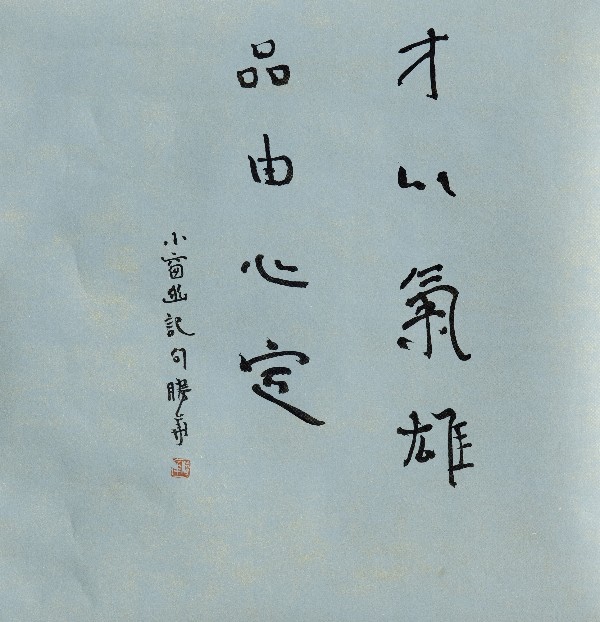 才以氣雄
品由心定
小窗幽記句勝華